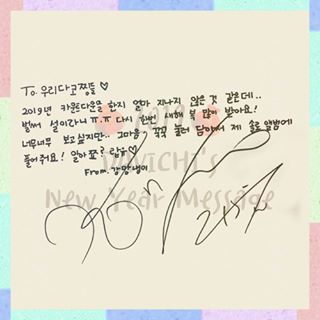 To. 우리다코찡들♡
2019년 카운트다운을 한지 얼마 지나지 않은 것 같은데..
벌써 설이라니 ㅠ.ㅠ 다시 한번 새해 복 많이 받아요!
너무너무 보고싶지만.. 그마음 꾹꾹 눌러 담아서 제 솔로 앨범에
풀어줘요! 알아쬬? 랍유♡
From. 강망냉이
2019
DAVICHI's
New Year Message